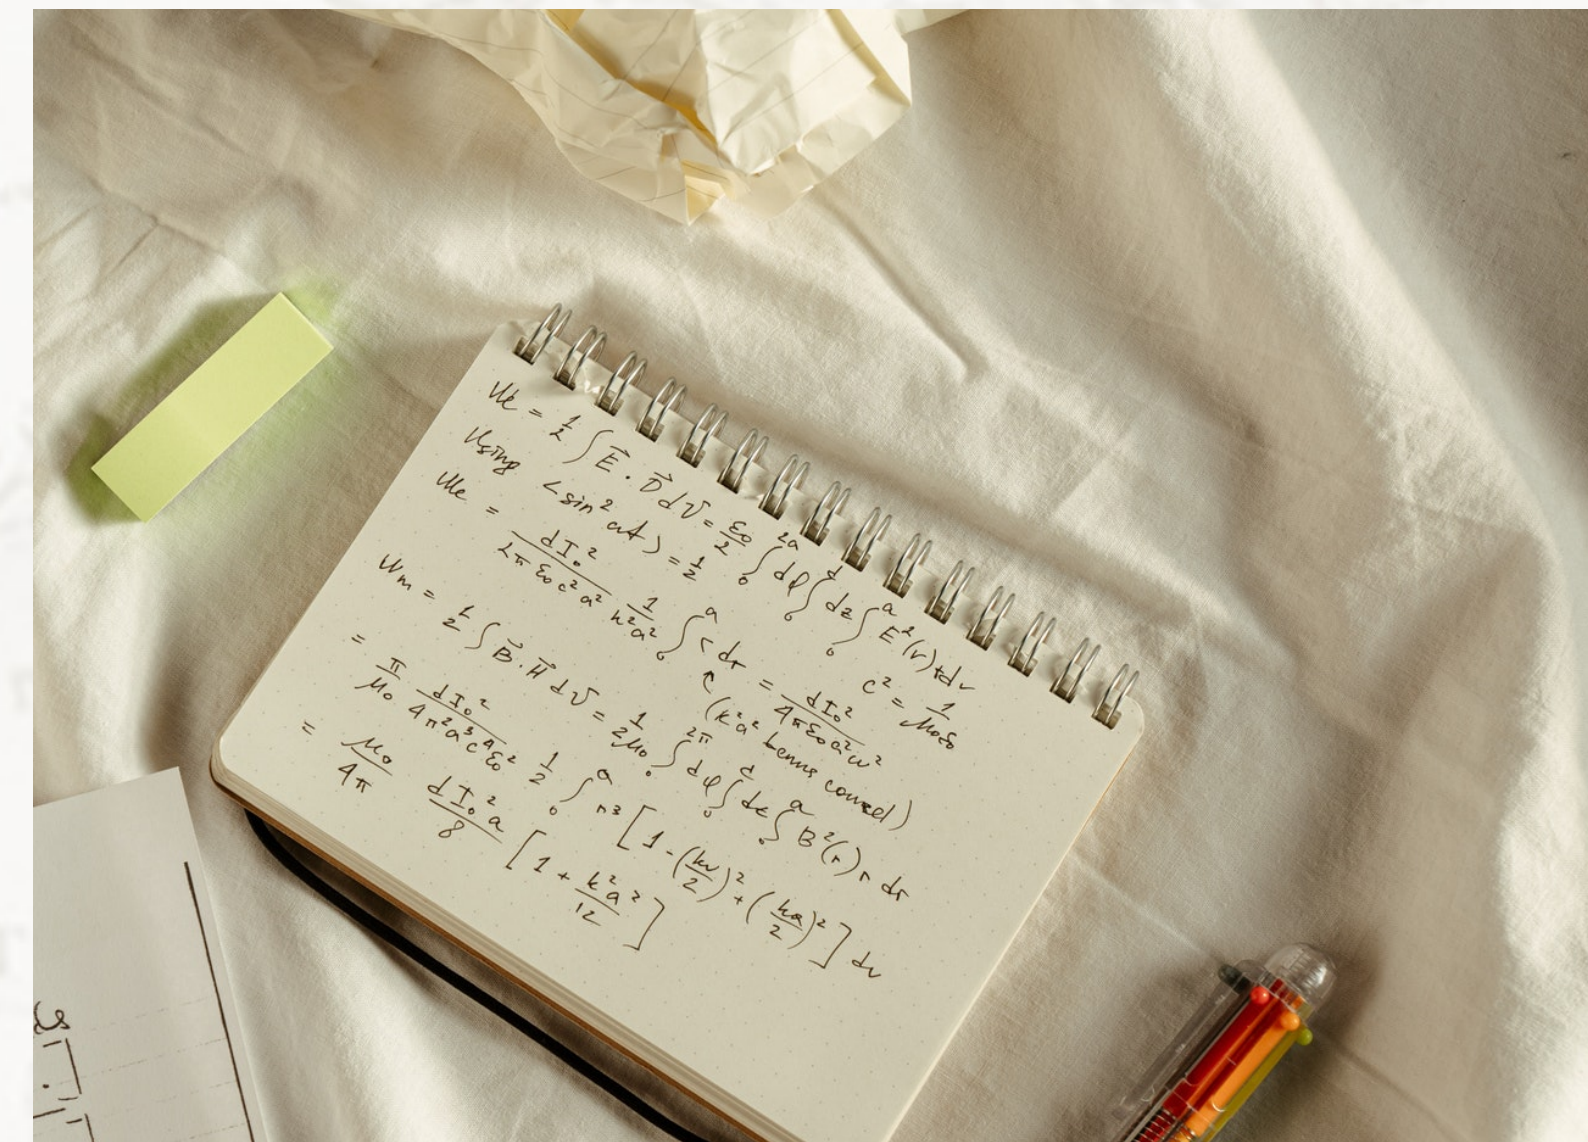 We = 1/2 ∫ E⃗ · D⃗ dV = ε₀/2 ∫₀^2a dφ ∫₀^d dz ∫₀^a E²(r) r dr
Using <sin² ωt> = 1/2 c² = 1/μ₀ε₀
We = dI₀²/2πε₀c²a² 1/k²a² ∫₀^a r dr = dI₀²/4πε₀a²ω²
↑ (k²a² terms cancel)
Wm = 1/2 ∫ B⃗ · H⃗ dV = 1/2μ₀ ∫₀^2π dφ ∫₀^d dz ∫₀^a B²(r) r dr
= π/μ₀ dI₀²/4π²a³c⁴ε₀² 1/2 ∫₀^a r³ [1 - (kr/2)² + (ka/2)²] dr
= μ₀/4π dI₀²a/8 [1 + k²a²/12]